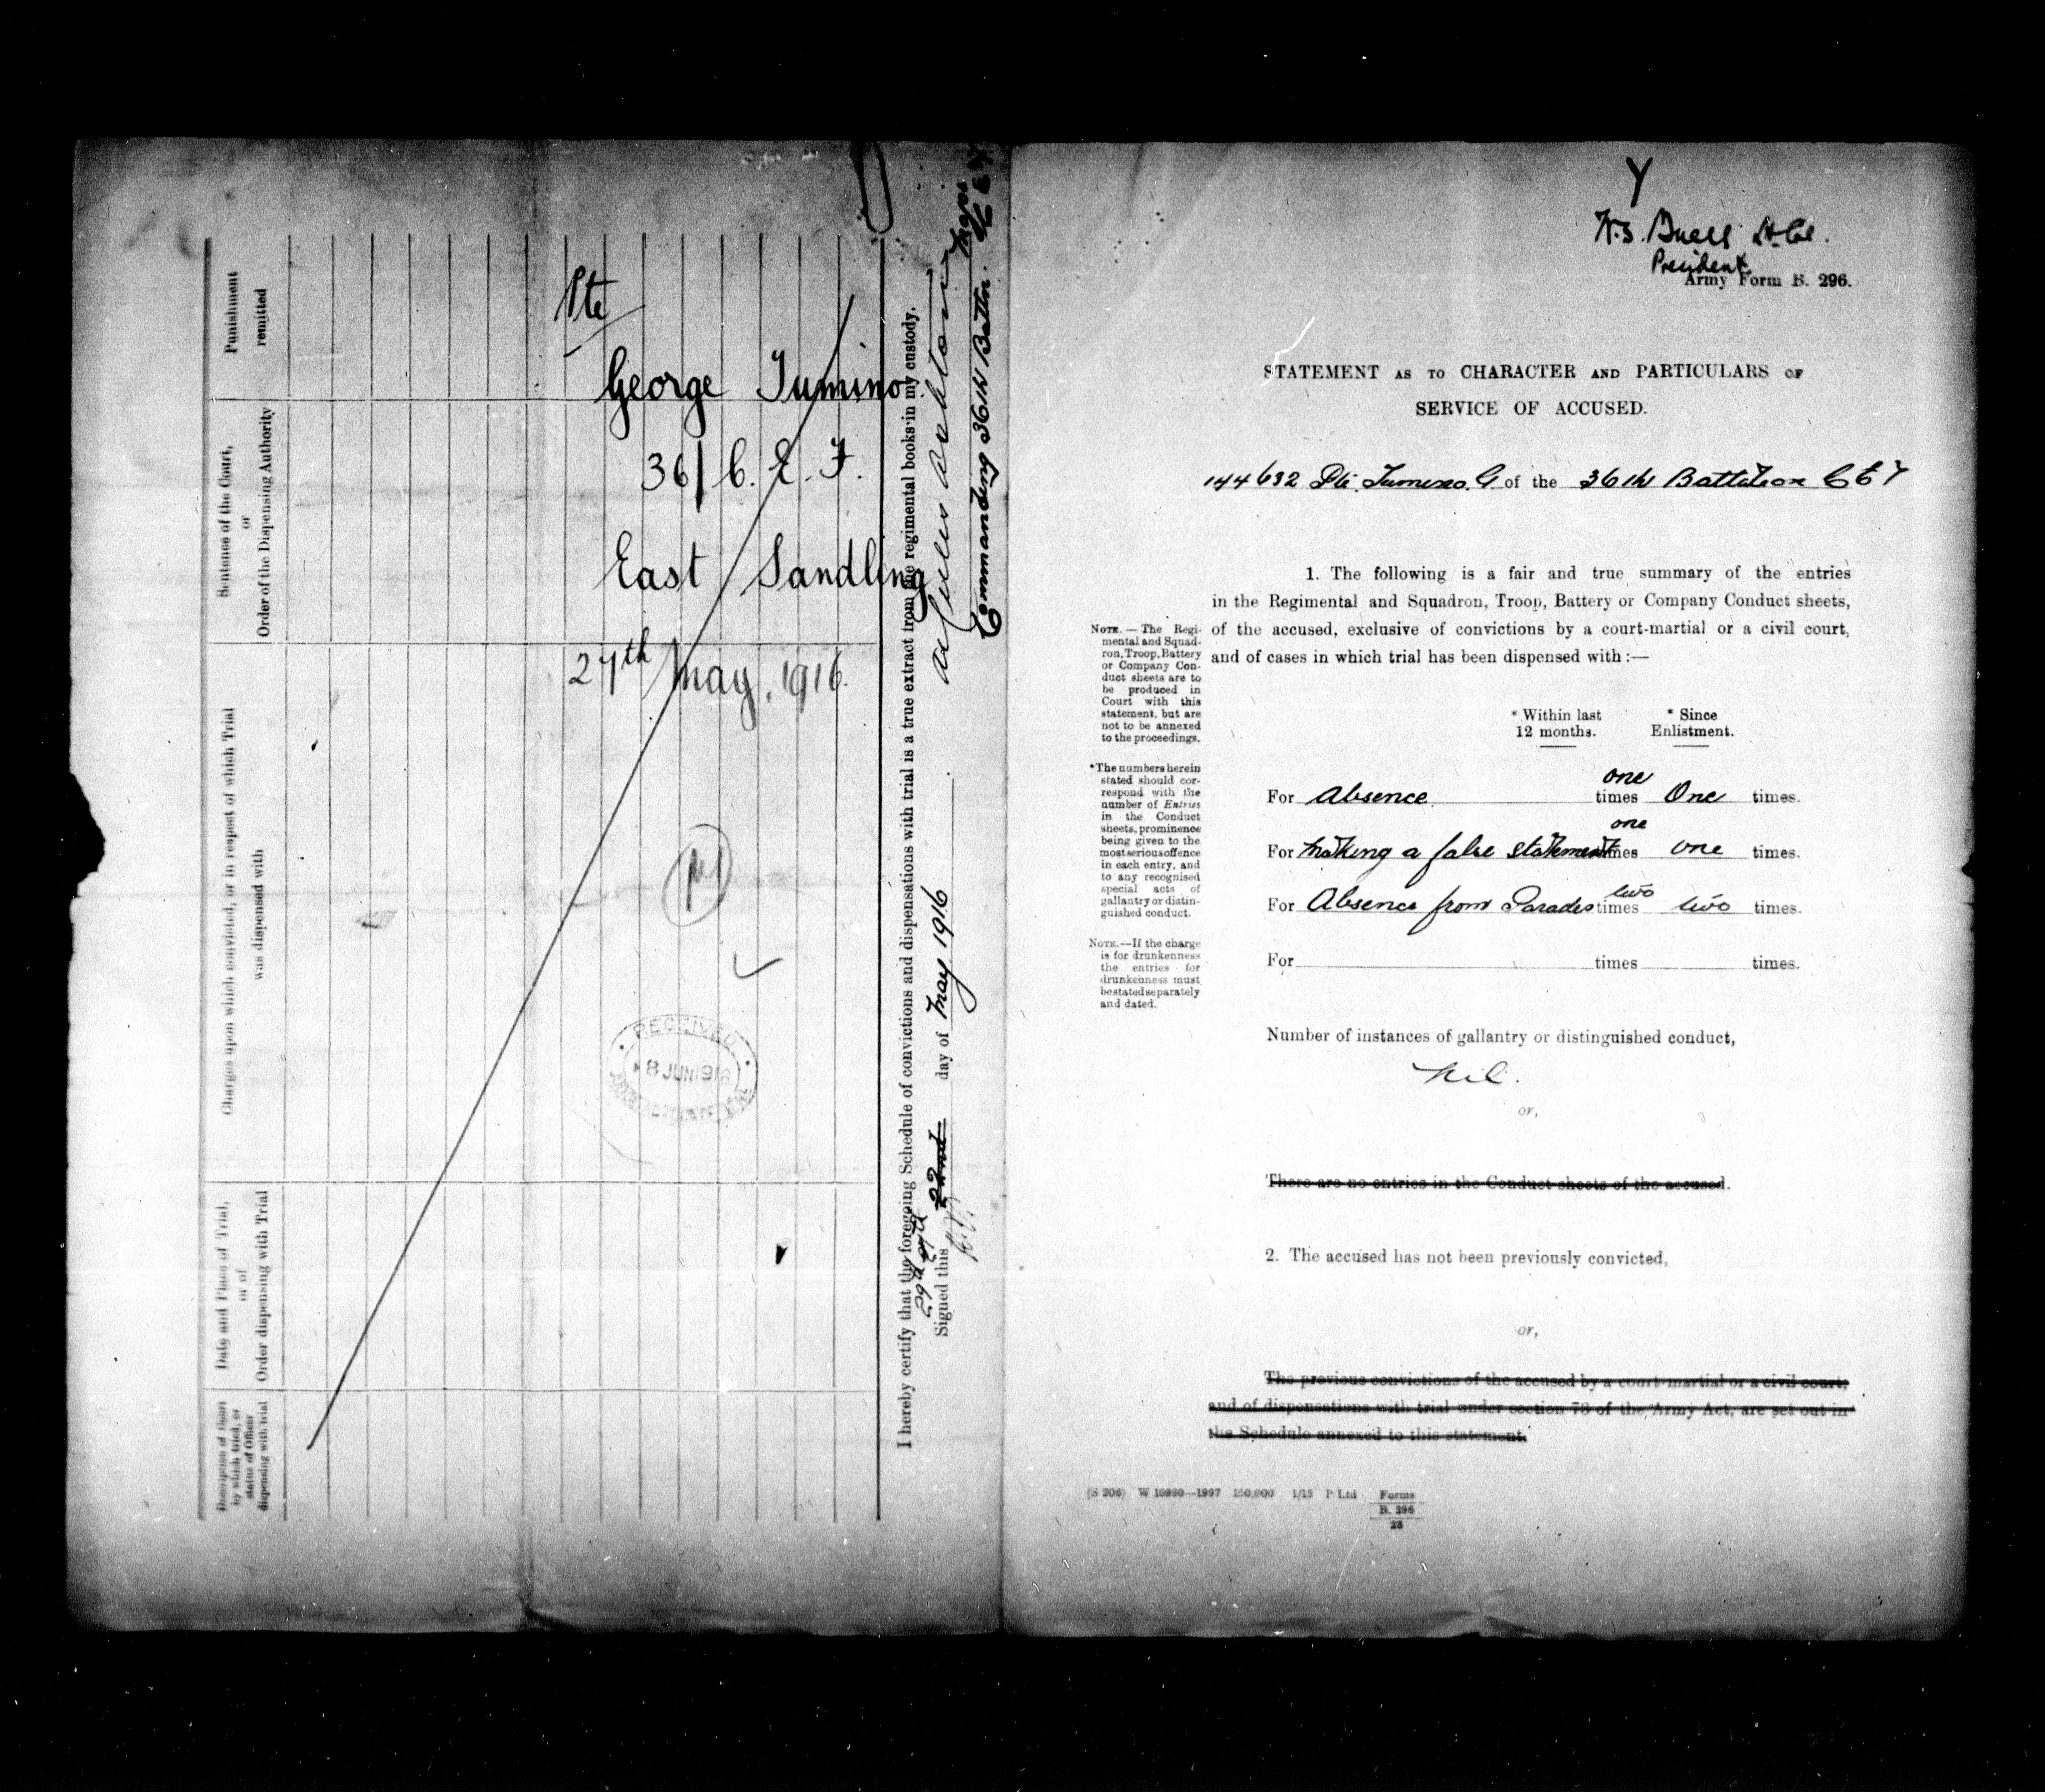 Punishment
remitted
Sentence of the Court,
or
Order of the Dispensing Authority
Charges upon which convicted, or in respect of which Trial
was dispensed with
Date and Place of Trial,
or of
Order dispensing with Trial
Description of Court
by which tried, or
status of Officer
dispensing with trial
Pte
George Tumino
36/ C. E. F.
East Sandling
27th May, 1916.
RECEIVED
8 JUN 1916
I hereby certify that the foregoing Schedule of convictions and dispensations with trial is a true extract from the regimental books in my custody.
Signed this 22nd day of May 1916
Major
Commanding 36th Battn. C E F
Y
W.S. Buell Lt. Col.
President
Army Form B. 296.
STATEMENT AS TO CHARACTER AND PARTICULARS OF
SERVICE OF ACCUSED.
144632 Pte. Tumino. G of the 36th Battalion C E F
1. The following is a fair and true summary of the entries
in the Regimental and Squadron, Troop, Battery or Company Conduct sheets,
of the accused, exclusive of convictions by a court-martial or a civil court,
and of cases in which trial has been dispensed with :—
NOTE. — The Regi-
mental and Squad-
ron, Troop, Battery
or Company Con-
duct sheets are to
be produced in
Court with this
statement, but are
not to be annexed
to the proceedings.
* Within last * Since
12 months. Enlistment.
*The numbers herein
stated should cor-
respond with the
number of Entries
in the Conduct
sheets, prominence
being given to the
most serious offence
in each entry, and
to any recognised
special acts of
gallantry or distin-
guished conduct.
one
For Absence times One times.
one
For Making a false statement times one times.
two
For Absence from Parades times two times.
For times times.
NOTE.—If the charge
is for drunkenness
the entries for
drunkenness must
be stated separately
and dated.
Number of instances of gallantry or distinguished conduct,
Nil.
or,
There are no entries in the Conduct sheets of the accused.
2. The accused has not been previously convicted,
or,
The previous convictions of the accused by a court-martial or a civil court,
and of dispensations with trial under section 73 of the Army Act, are set out in
the Schedule annexed to this statement.
(S 206) W 10980—1997 150,000 1/15 P Ltd Forms
B. 296
28